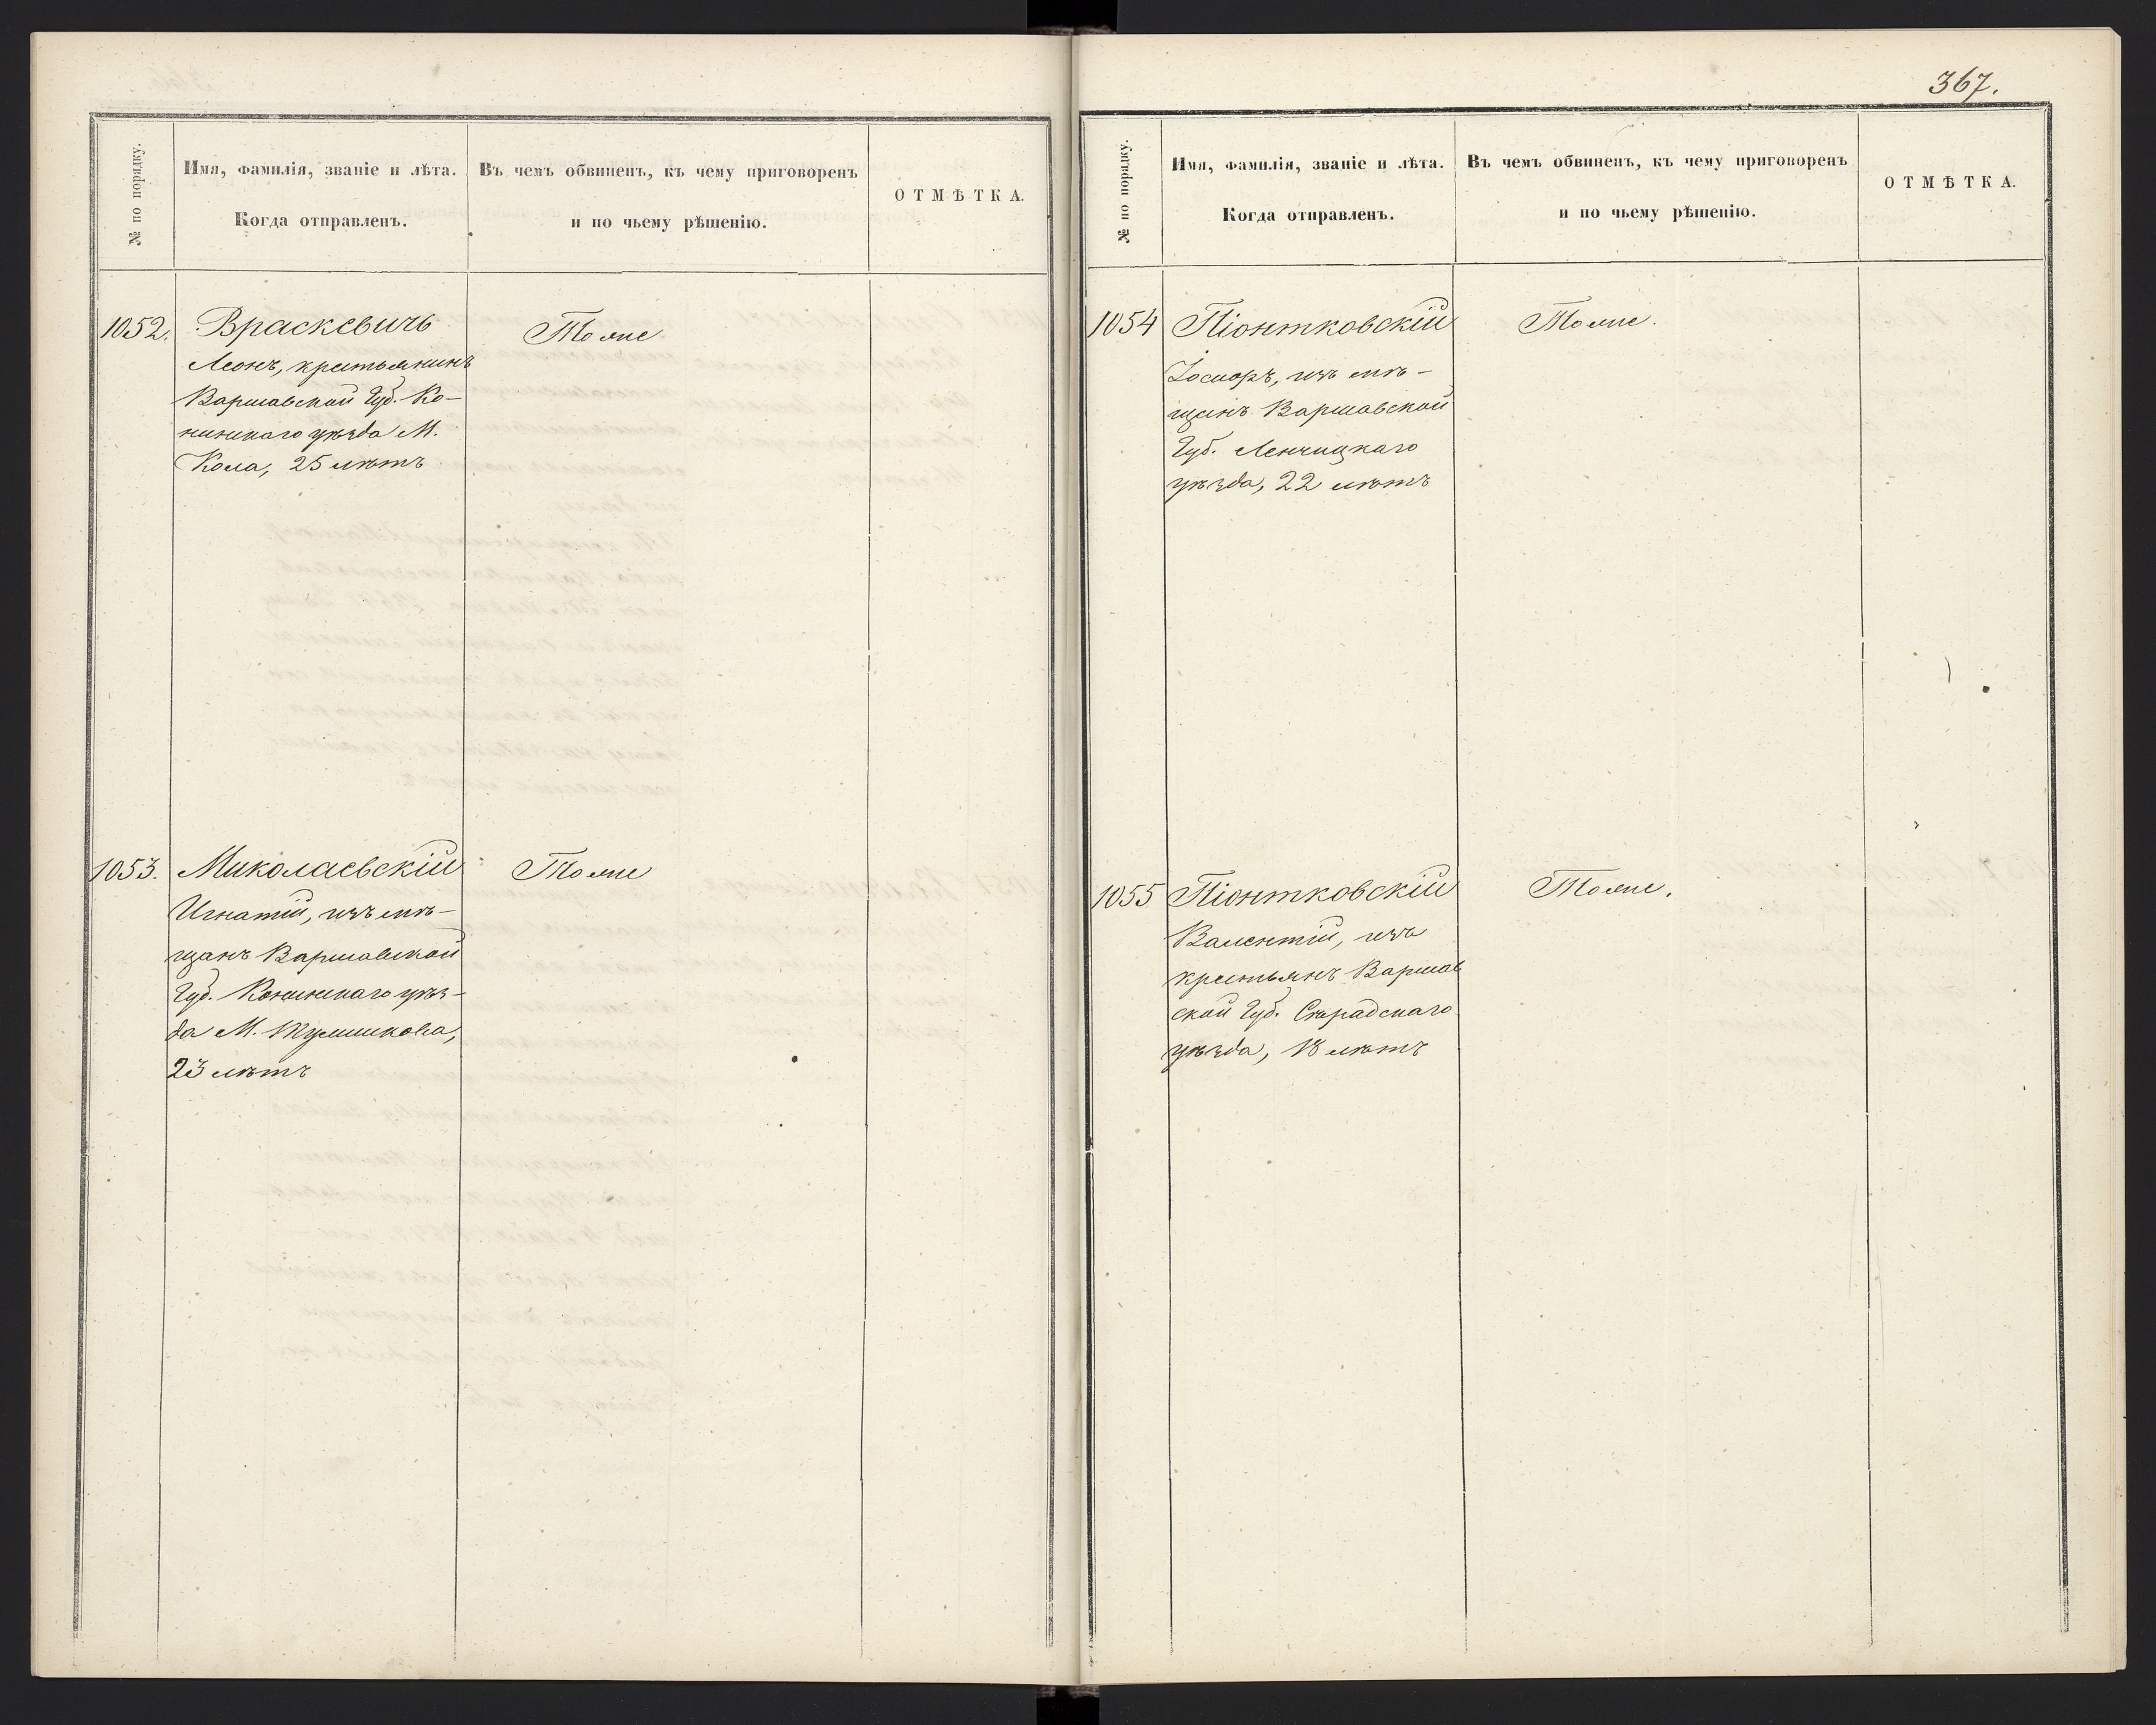 № по порядку.
Имя, фамилія, званіе и лѣта.
Когда отправленъ.
Въ чемъ обвиненъ, къ чему приговоренъ
и по чьему рѣшенію.
ОТМѢТКА.
1052.
Враскевичъ
Леонъ, крестьянинъ
Варшавской Губ. Ко-
нинскаго уѣзда М.
Кола, 25 лѣтъ
Тоже
1053.
Миколаевскій
Игнатій, изъ мѣ-
щанъ Варшавской
Губ. Конинскаго уѣз-
да М.
23 лѣтъ
Тоже
367.
№ по порядку.
Имя, фамилія, званіе и лѣта.
Когда отправленъ.
Въ чемъ обвиненъ, къ чему приговоренъ
и по чьему рѣшенію.
ОТМѢТКА.
1054
Піонтковскій
Іосифъ, изъ мѣ-
щанъ Варшавской
Губ. Ленчицкаго
уѣзда, 22 лѣтъ
Тоже.
1055
Піонтковскій
Валентій, изъ
крестьянъ Варшав
ской Губ. Сѣрадскаго
уѣзда, 18 лѣтъ
Тоже.